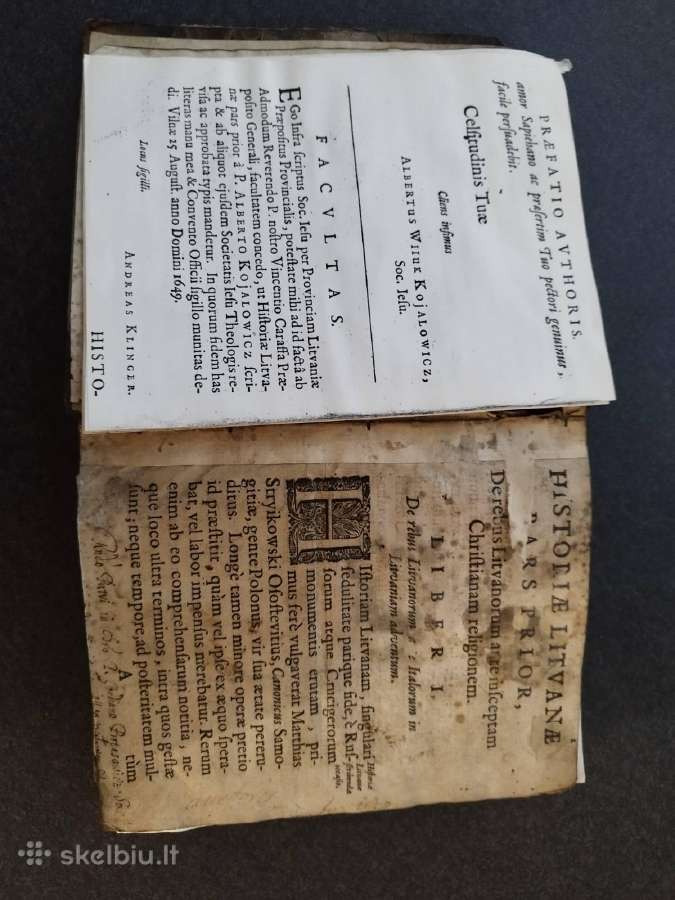 PRÆFATIO AVTHORIS.
amor Sapiehamo ac præsertim Tuo pectori genuinus,
facile persuadebit.
Celsitudinis Tuæ
Cliens infimus
ALBERTUS WIIUK KOJALOWICZ,
Soc. Iesu.
FACVLTAS.
EGo Infra scriptus Soc. Iesu per Provinciam Litvaniæ
Præpositus Provincialis, potestate mihi ad id factâ ab
Admodum Reverendo P. nostro Vincentio Caraffa Præ-
posito Generali, facultatem concedo, ut Historiæ Litva-
næ pars prior à P. ALBERTO KOJALOWICZ scri-
pta & ab aliquot ejusdem Societatis Iesu Theologis re-
visa ac approbata typis mandetur. In quorum fidem has
literas manu mea & Convento Officii sigillo munitas de-
di. Vilnæ 25 August. anno Domini 1649.
Locus sigilli.
ANDREAS KLINGER.
HISTO-
HISTORIÆ LITVANÆ
PARS PRIOR,
De rebus Litvanorum ante susceptam
Christianam religionem.
LIBER I.
De rebus Litvanorum Italorum in
Litvaniam adventum.
HIstoriam Litvanam, singulari
sedulitate parique fide, è Rus-
sorum atque Crucigerorum
monumentis erutam, pri-
mus ferè vulgaverat Matthias
Stryikowski Osostevitius, Canonicus Samo-
gitiæ, gente Polonus, vir sua ætate pereru-
ditus. Longè tamen minore operæ pretio
id præstitit, quàm vel ipse ex æquo spera-
bat, vel labor impensus merebatur. Rerum
enim ab eo comprehensarum notitia, ne-
que loco ultra terminos, intra quos gestæ
sunt; neque tempore, ad posteritatem mul-
A tùm
skelbiu.lt